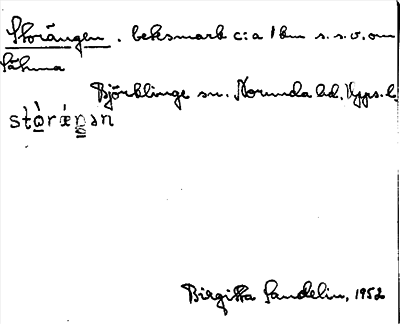 Storängen. beksmark c:a 1 km s.s.v. om
Sähma
Björklinge sn. Norunda hd. Upps. l.
stòrǽŋən
Birgitta Sandelin, 1952